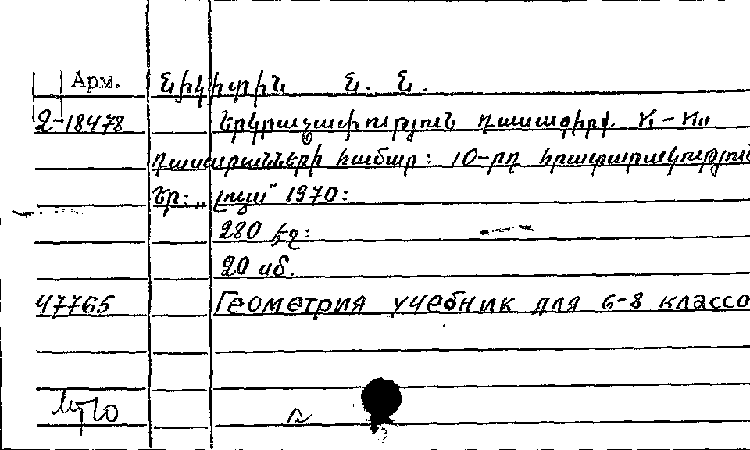 Арм. Նիկիտին Ն. Ն.
2-18478 Երկրաչափություն դասագիրք VI - VIII
դասարանների համար: 10-րդ հրատարակություն
Եր: „Լույս" 1970:
280 էջ:
20 սմ.
47765 Геометрия учебник для 6-8 классо